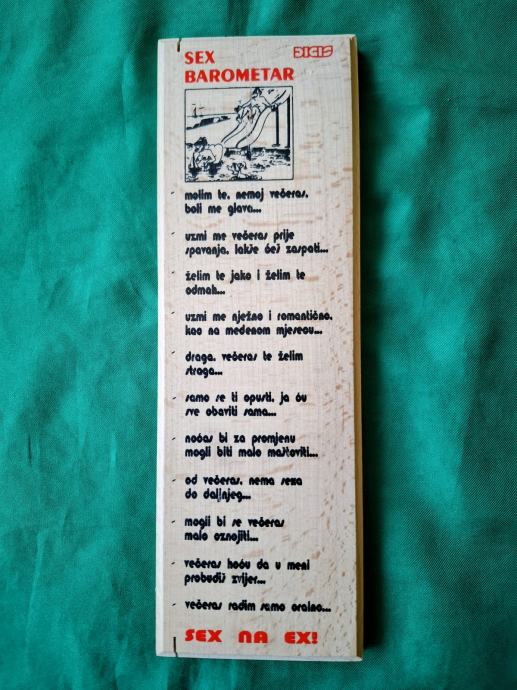 SEX
BAROMETAR
DIGIS
molim te, nemoj večeras,
boli me glava...
uzmi me večeras prije
spavanja, lakše ćeš zaspati...
želim te jako i želim te
odmah...
uzmi me nježno i romantično,
kao na medenom mjesecu...
draga, večeras te želim
straga...
samo se ti opusti, ja ću
sve obaviti sama...
noćas bi za promjenu
mogli biti malo maštoviti...
od večeras, nema sexa
do daljnjeg...
mogli bi se večeras
malo oznojiti...
večeras hoću da u meni
probudiš zvijer...
večeras radim samo oralno...
SEX NA EX!